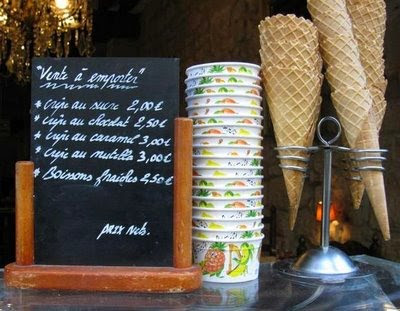 "Vente à emporter"
* Crêpe au sucre 2,00€
* Crêpe au chocolat 2,50€
* Crêpe au caramel 3,00€
* Crêpe au nutella 3,00€
* Boissons fraîches 2,50€
prix nets.